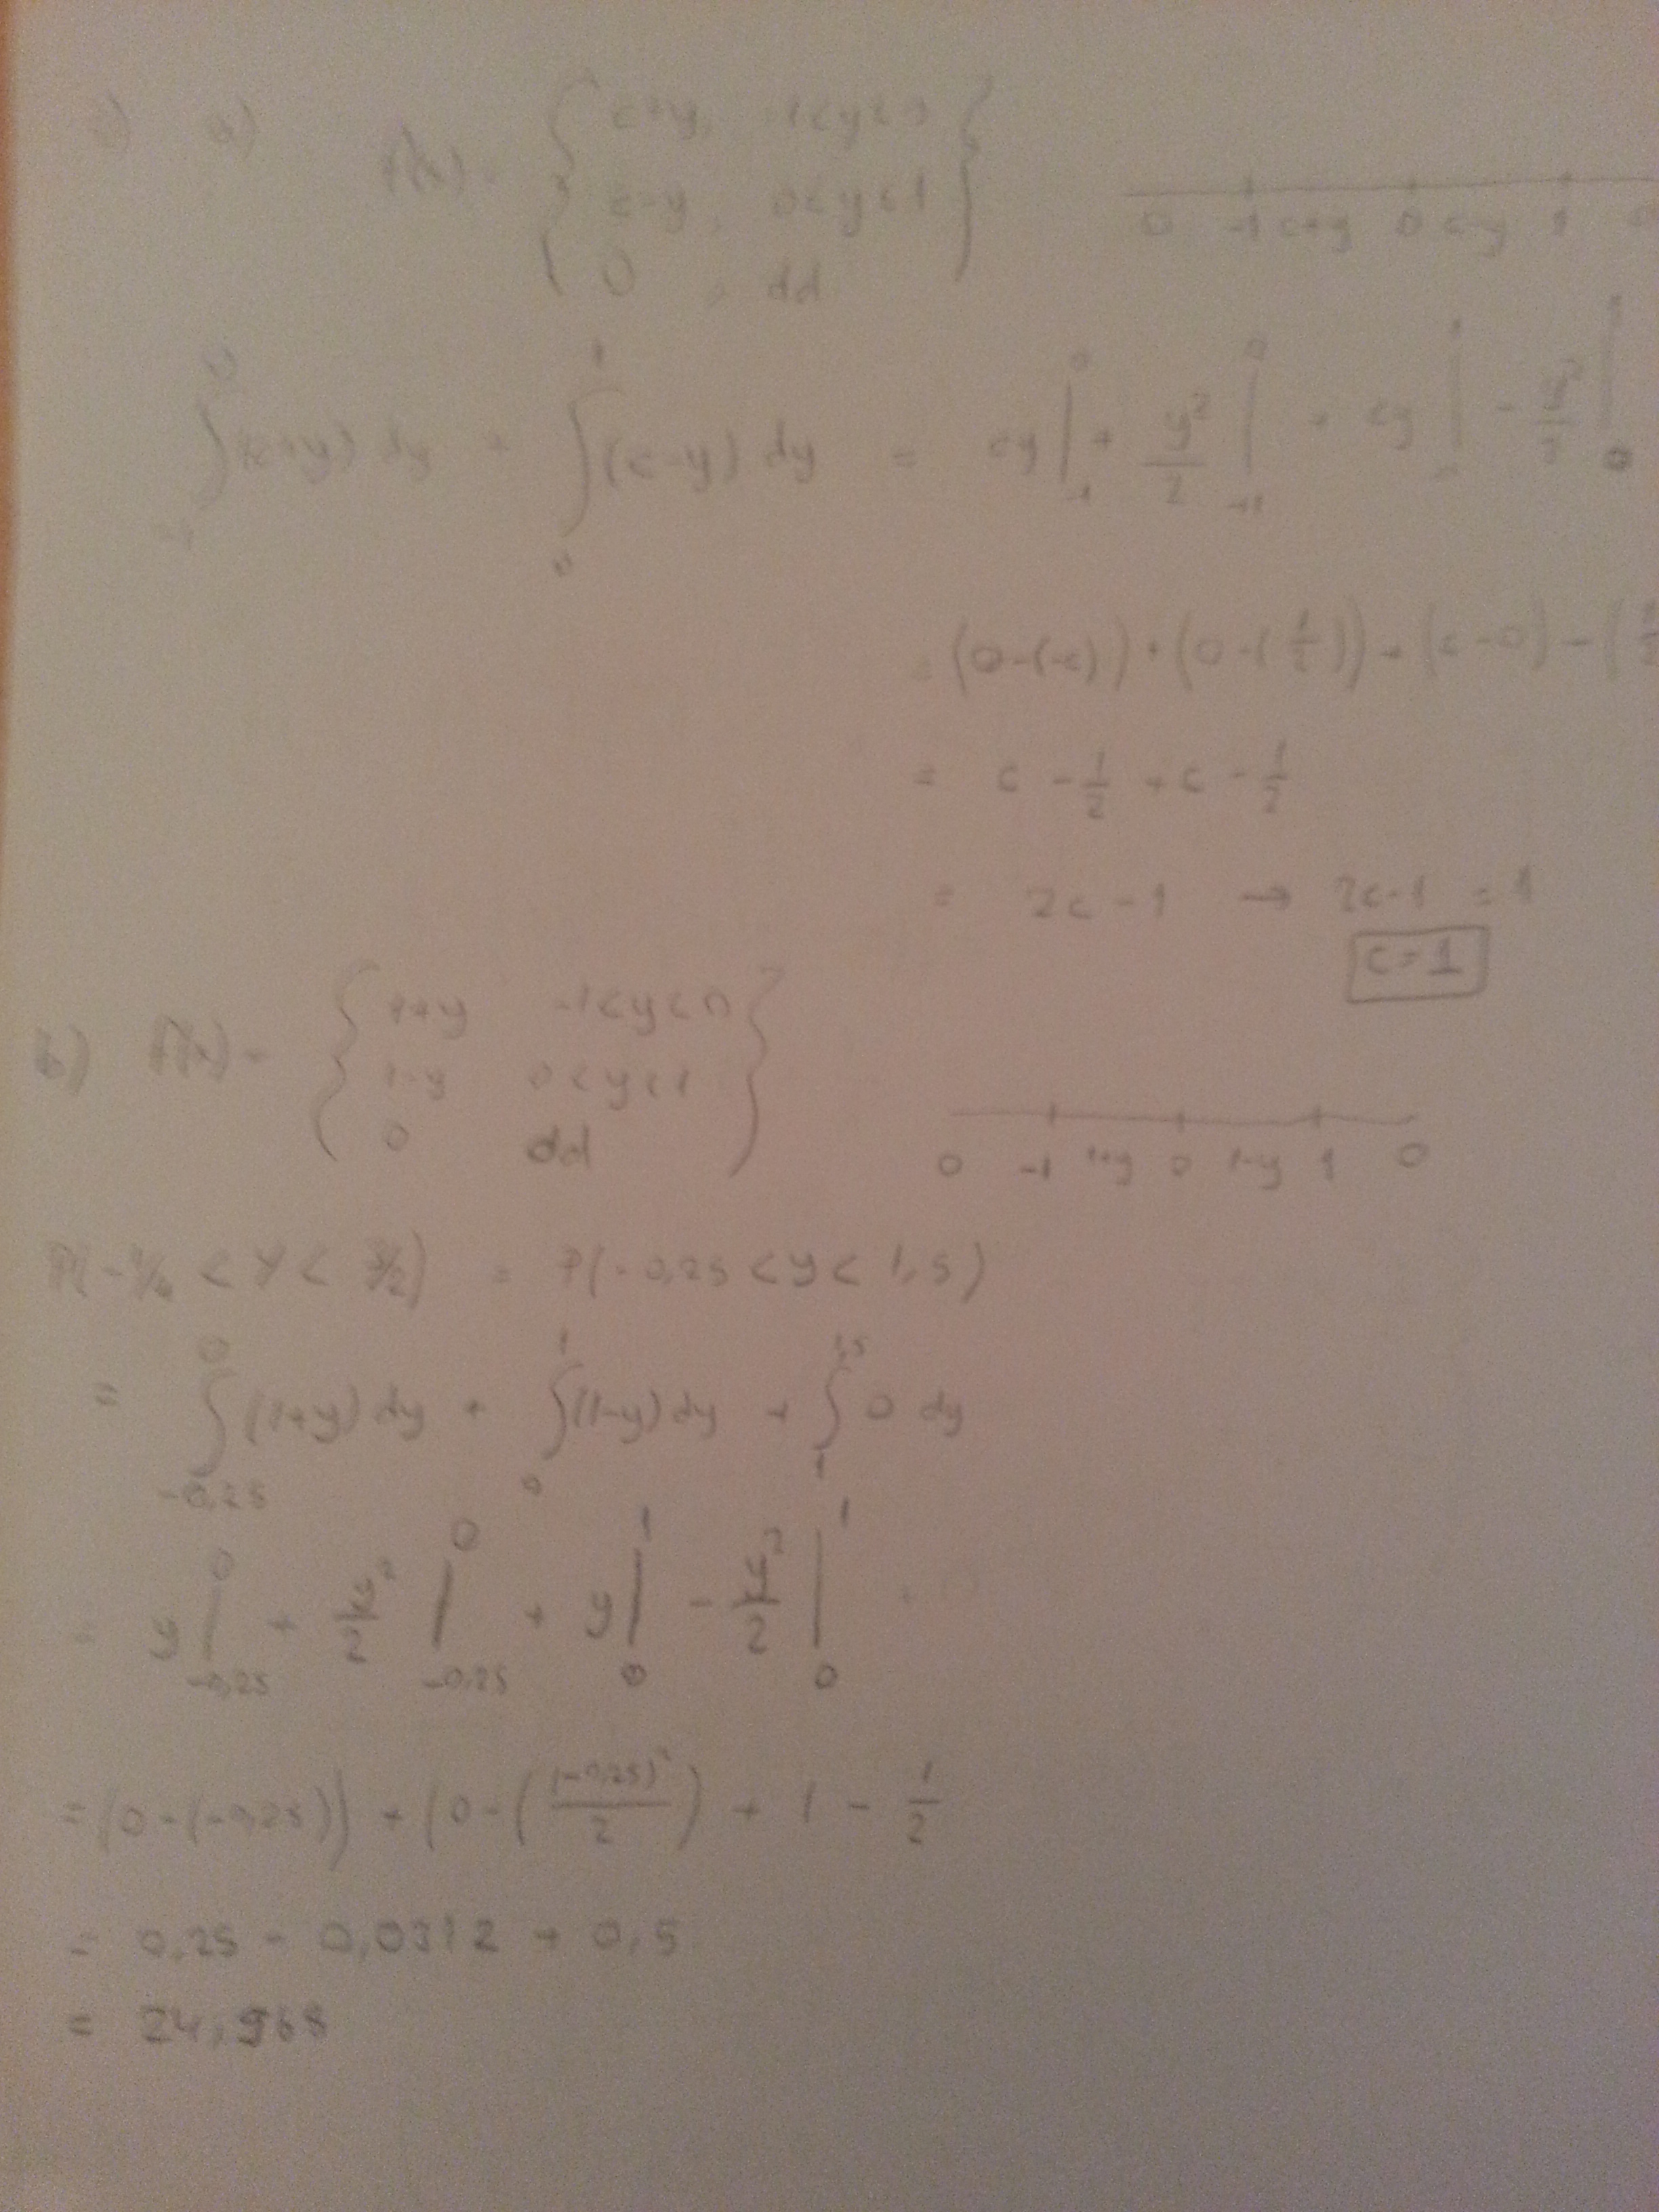 a) f(x) = { c+y, -1<y<0
c-y, 0<y<1
0 , dd }
0 -1 c+y 0 c-y 1 0
∫_{-1}^{0} (c+y) dy + ∫_{0}^{1} (c-y) dy = cy |_{-1}^{0} + y²/2 |_{-1}^{0} + cy | - y²/2 |_{0}
= (0-(-c)) + (0-(1/2)) + (c-0) - (
= c - 1/2 + c - 1/2
= 2c - 1 → 2c-1 = 1
c=1
b) f(x) = { 1+y -1<y<0
1-y 0<y<1
0 dd }
0 -1 1+y 0 1-y 1 0
P(-1/4 < Y < 3/2) = P(-0,25 < y < 1,5)
= ∫_{-0,25}^{0} (1+y) dy + ∫_{0}^{1} (1-y) dy + ∫_{1}^{1,5} 0 dy
= y |_{-0,25}^{0} + y²/2 |_{-0,25}^{0} + y |_{0}^{1} - y²/2 |_{0}^{1}
= (0-(-0,25)) + (0-((-0,25)²/2) + 1 - 1/2
= 0,25 - 0,0312 + 0,5
= 24,968